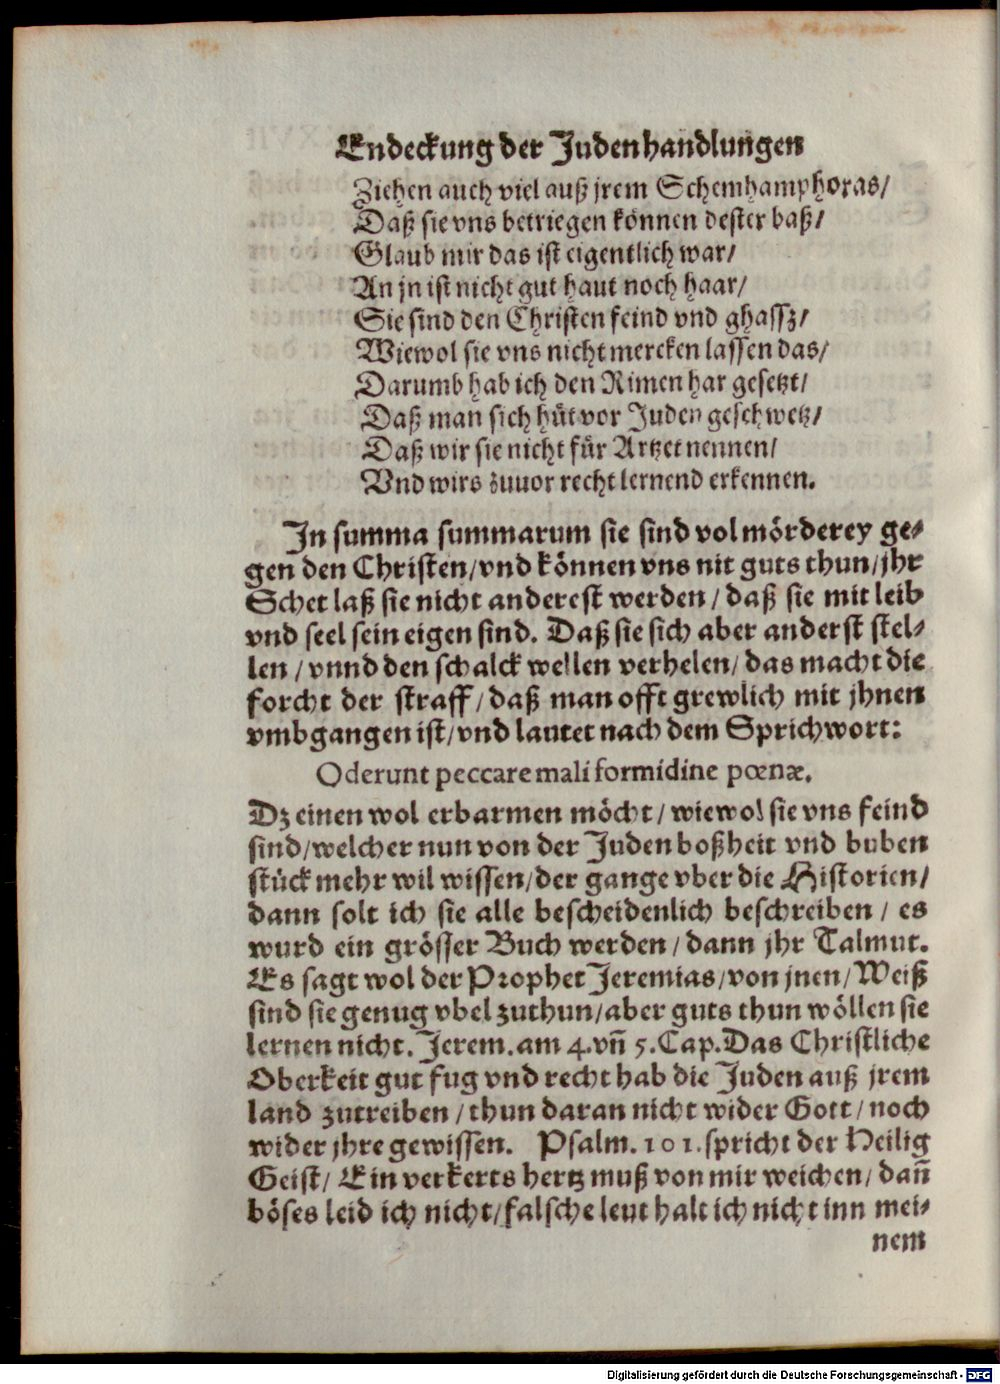 Endeckung der Juden handlungen
Ziehen auch viel auß jrem Schemhamphoras/
Daß sie vns betriegen können dester baß/
Glaub mir das ist eigentlich war/
An jn ist nicht gut haut noch haar/
Sie sind den Christen feind vnd ghassz/
Wiewol sie vns nicht mercken lassen das/
Darumb hab ich den Rimen har gesetzt/
Daß man sich hüt vor Juden geschwetz/
Daß wir sie nicht für Artzet nennen/
Vnd wirs zuuor recht lernend erkennen.
In summa summarum sie sind vol mörderey ge-
gen den Christen/vnd können vns nit guts thun/jhr
Schet laß sie nicht anderest werden/daß sie mit leib
vnd seel sein eigen sind. Daß sie sich aber anderst stel-
len/vnnd den schalck wellen verhelen/das macht die
forcht der straff/daß man offt grewlich mit jhnen
vmbgangen ist/vnd lautet nach dem Sprichwort:
Oderunt peccare mali formidine pœnæ.
Dz einen wol erbarmen möcht/wiewol sie vns feind
sind/welcher nun von der Juden boßheit vnd buben
stück mehr wil wissen/der gange vber die Historien/
dann solt ich sie alle bescheidenlich beschreiben/es
wurd ein grösser Buch werden/dann jhr Talmut.
Es sagt wol der Prophet Jeremias/von jnen/Weiß
sind sie genug vbel zuthun/aber guts thun wöllen sie
lernen nicht. Jerem.am 4.vñ 5.Cap.Das Christliche
Oberkeit gut fug vnd recht hab die Juden auß jrem
land zutreiben/thun daran nicht wider Gott/noch
wider jhre gewissen. Psalm.101.spricht der Heilig
Geist/Ein verkerts hertz muß von mir weichen/dañ
böses leid ich nicht/falsche leut halt ich nicht inn mei-
nem
Digitalisierung gefördert durch die Deutsche Forschungsgemeinschaft - DFG